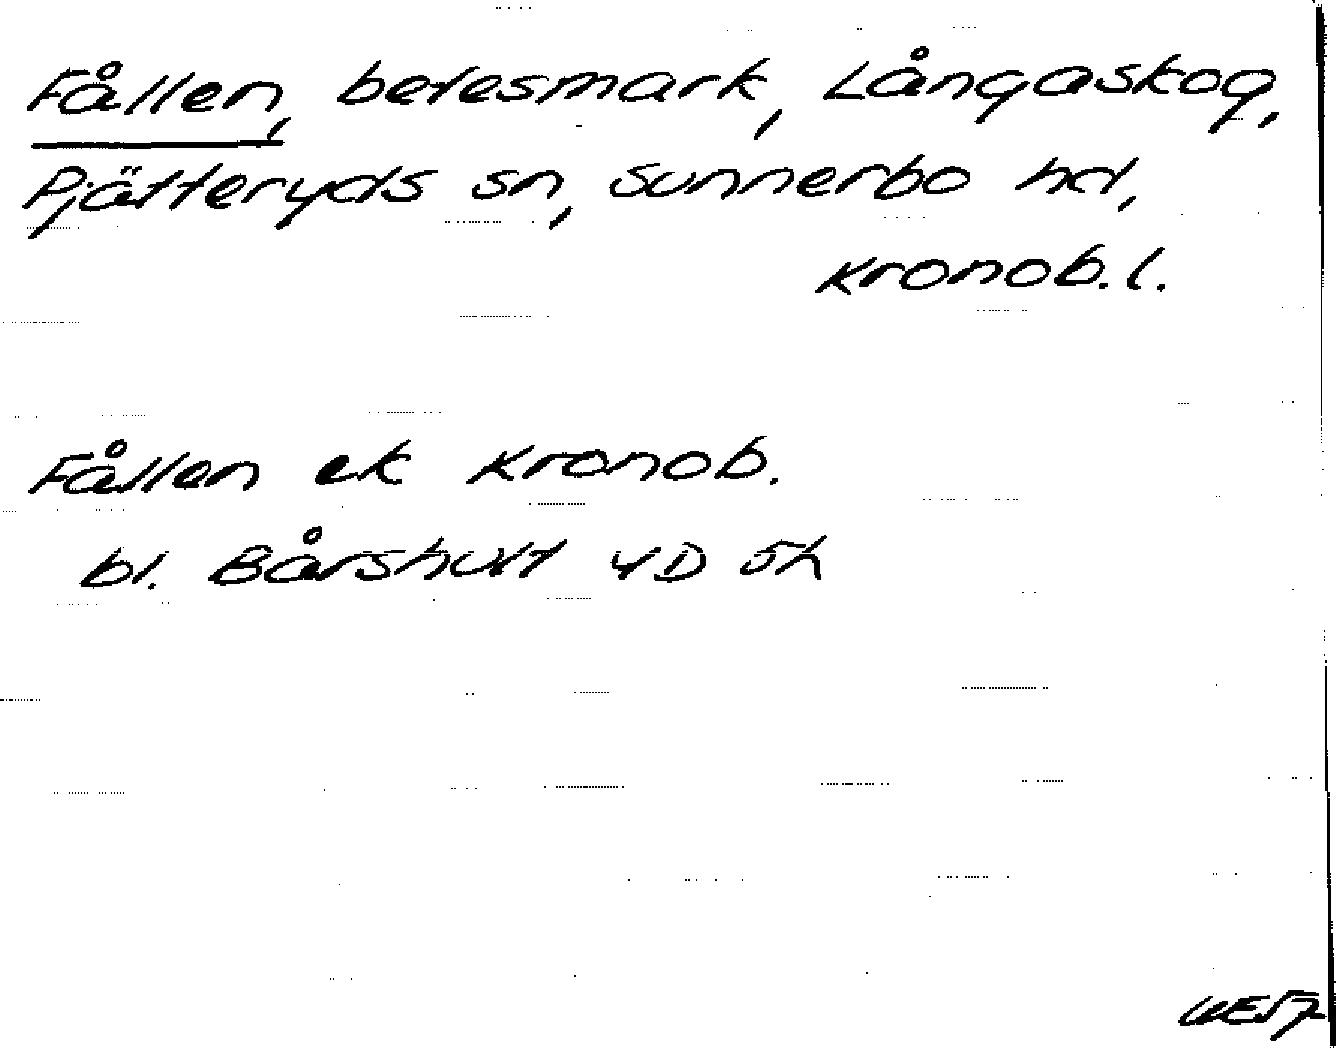 Fållen, betesmark, Långaskog,
Pjätteryds sn, Sunnerbo hd,
Kronob. l.
Fållen ek Kronob.
bl. Bårshult 4D 5h